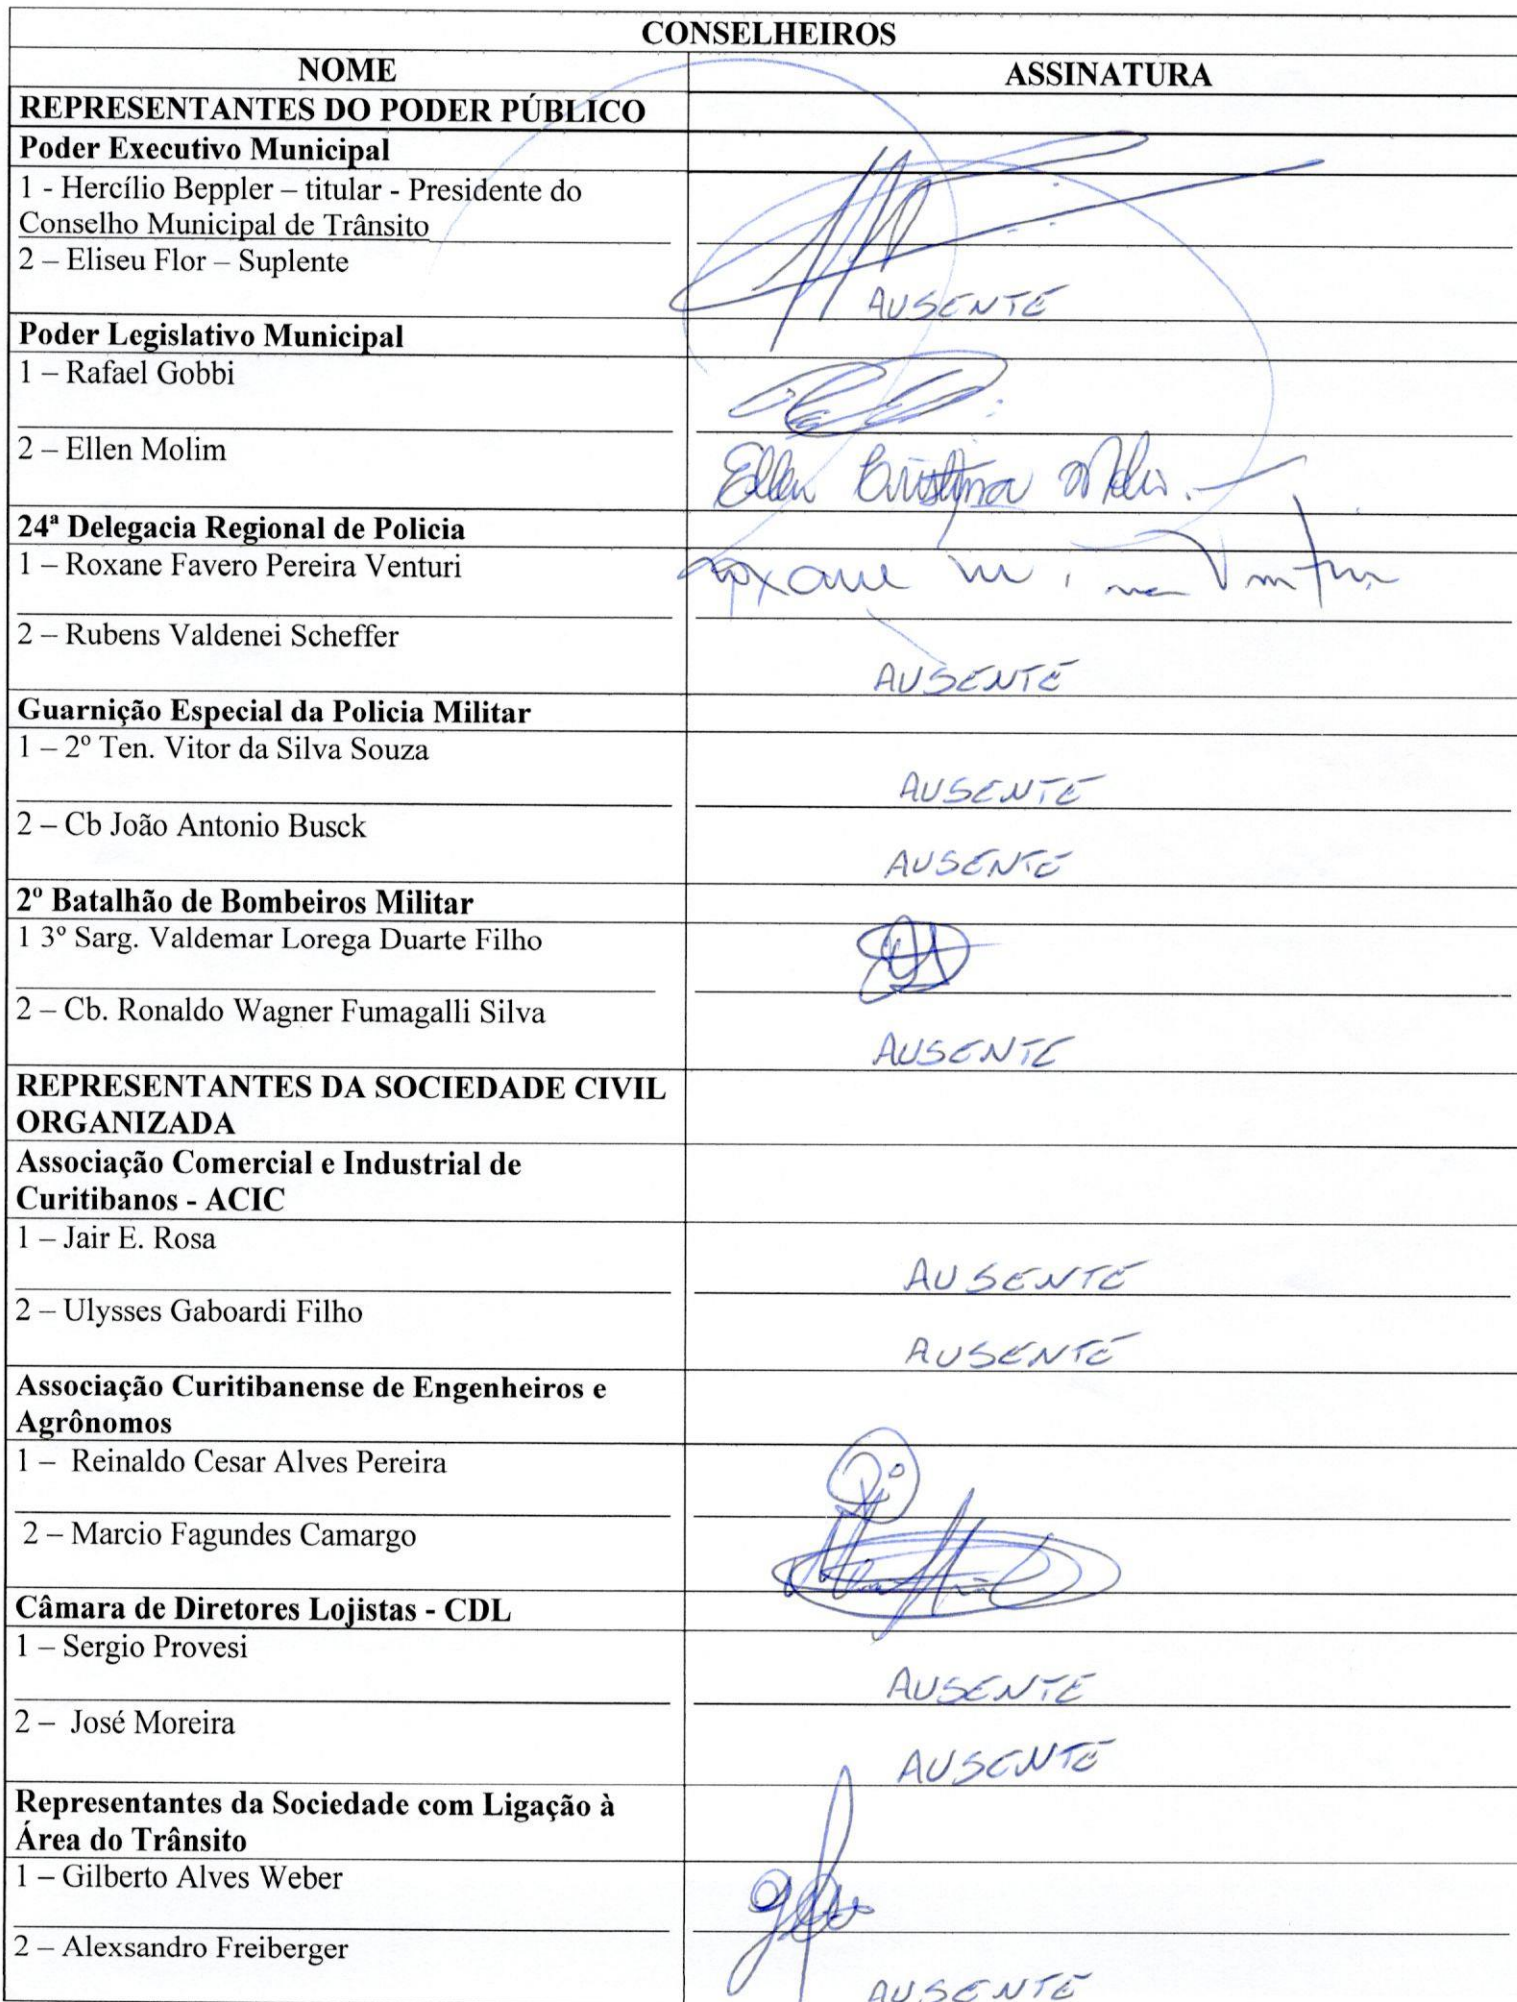 CONSELHEIROS
NOME ASSINATURA
REPRESENTANTES DO PODER PÚBLICO
Poder Executivo Municipal
1 - Hercílio Beppler – titular - Presidente do
Conselho Municipal de Trânsito
2 – Eliseu Flor – Suplente
AUSENTE
Poder Legislativo Municipal
1 – Rafael Gobbi
2 – Ellen Molim
Ellen Cristina
24ª Delegacia Regional de Policia
1 – Roxane Favero Pereira Venturi
Roxane Venturi
2 – Rubens Valdenei Scheffer
AUSENTE
Guarnição Especial da Policia Militar
1 – 2º Ten. Vitor da Silva Souza
AUSENTE
2 – Cb João Antonio Busck
AUSENTE
2º Batalhão de Bombeiros Militar
1 3º Sarg. Valdemar Lorega Duarte Filho
2 – Cb. Ronaldo Wagner Fumagalli Silva
AUSENTE
REPRESENTANTES DA SOCIEDADE CIVIL
ORGANIZADA
Associação Comercial e Industrial de
Curitibanos - ACIC
1 – Jair E. Rosa
AUSENTE
2 – Ulysses Gaboardi Filho
AUSENTE
Associação Curitibanense de Engenheiros e
Agrônomos
1 – Reinaldo Cesar Alves Pereira
2 – Marcio Fagundes Camargo
Câmara de Diretores Lojistas - CDL
1 – Sergio Provesi
AUSENTE
2 – José Moreira
AUSENTE
Representantes da Sociedade com Ligação à
Área do Trânsito
1 – Gilberto Alves Weber
2 – Alexsandro Freiberger
AUSENTE